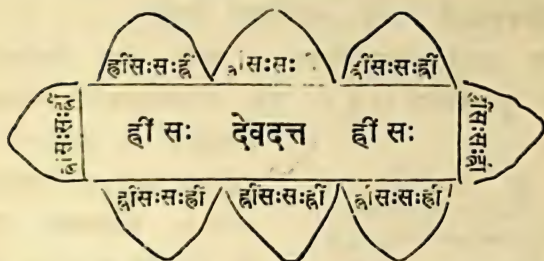 ह्रींसःसःह्रीं
सःसः
ह्रींसःसःह्रीं
ह्रींसःसःह्रीं
ह्रीं सः देवदत्त ह्रीं सः
ह्रींसःसःह्रीं
ह्रींसःसःह्रीं
ह्रींसःसःह्रीं
ह्रींसःसःह्रीं